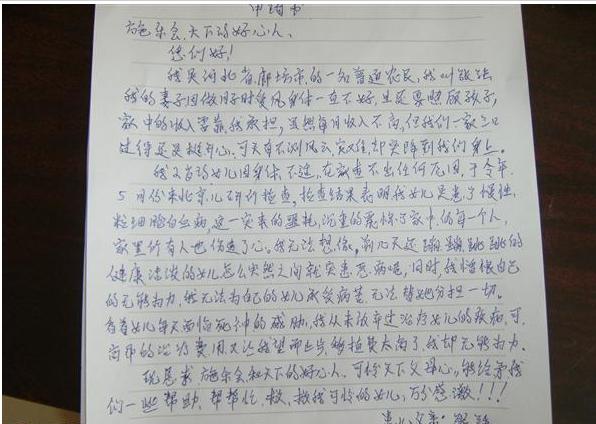 申请书
施乐会,天下的好心人、
您们好!
我是河北省廊坊市的一名普通农民,我叫
我的妻子因做月子时受风身体一直不好,生还要照顾孩子,
家中的收入要靠我承担,虽然每月收入不高,但我们一家三口
过得还是挺开心,可天有不测风云灾难却突降到我们身上。
我2岁的女儿因身体不适,在 查不出任何原因,于今年
5月份来北京儿研所检查,检查结果表明我女儿是患了慢性
粒细胞白血病,这一突来的噩耗,沉重的震惊了家中的每一个人,
家里所有人也伤透了心。我无法想像,前几天还蹦蹦跳跳的
健康活泼的女儿怎么突然之间就突患恶病呢,同时,我憎恨自己
的无能为力,我无法为自己的女儿承受病苦,无法替她分担一切。
看着女儿每天面临死神的威胁,我从未放弃过治疗女儿的疾病,可
高昂的治疗费用又让我望而止步,移植费太高了,我却无能为力。
现恳求施乐会和天下的好心人,可怜天下父母心,能给予我
们一些帮助,帮帮忙,救救我可怜的女儿,万分感激!!!
患儿父亲: